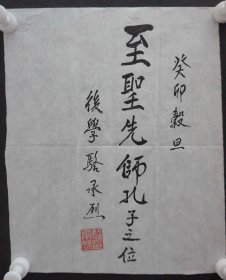 癸卯穀旦
至聖先師孔子之位
後學駱承烈